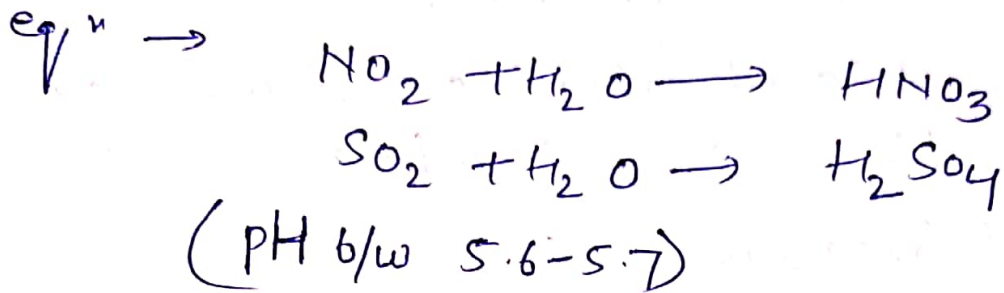 eqⁿ →
NO₂ + H₂O ⟶ HNO₃
SO₂ + H₂O → H₂SO₄
(pH b/w 5.6-5.7)